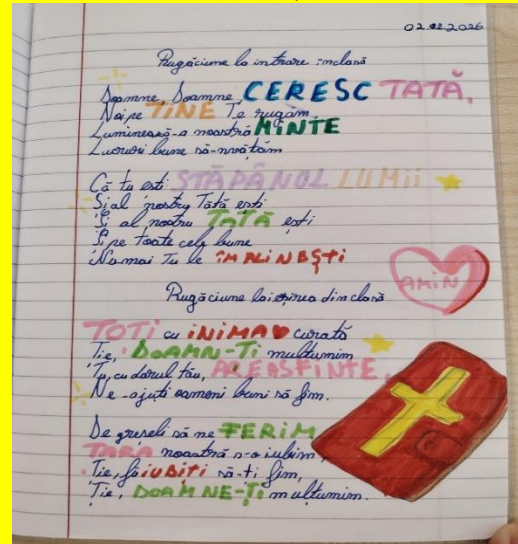 02.02.2026
Rugăciune la intrare înclasă
Doamne, Doamne, CERESC TATĂ,
Noi pe TINE Te rugăm
Luminează-a noastră MINTE
Lucruri bune să-nvățăm
Că tu ești STĂPÂNUL LUMII
Și al nostru Tată ești
Și al nostru TATĂ ești
Și pe toate cele bune
Numai Tu le ÎMPLINEȘTI
AMIN
Rugăciune la ieșirea din clasă
TOTI cu iNiMA curată
Ție, DOAMN-ȚI mulțumim
Tu, cu darul tău, PREASFINTE,
Ne-ajuți oameni buni să fim.
De greșeli să ne FERIM
ȚARA noastră s-o iubim,
Ție, fii iUBIȚI să-ți fim,
Ție, DOAMNE-ȚI mulțumim.